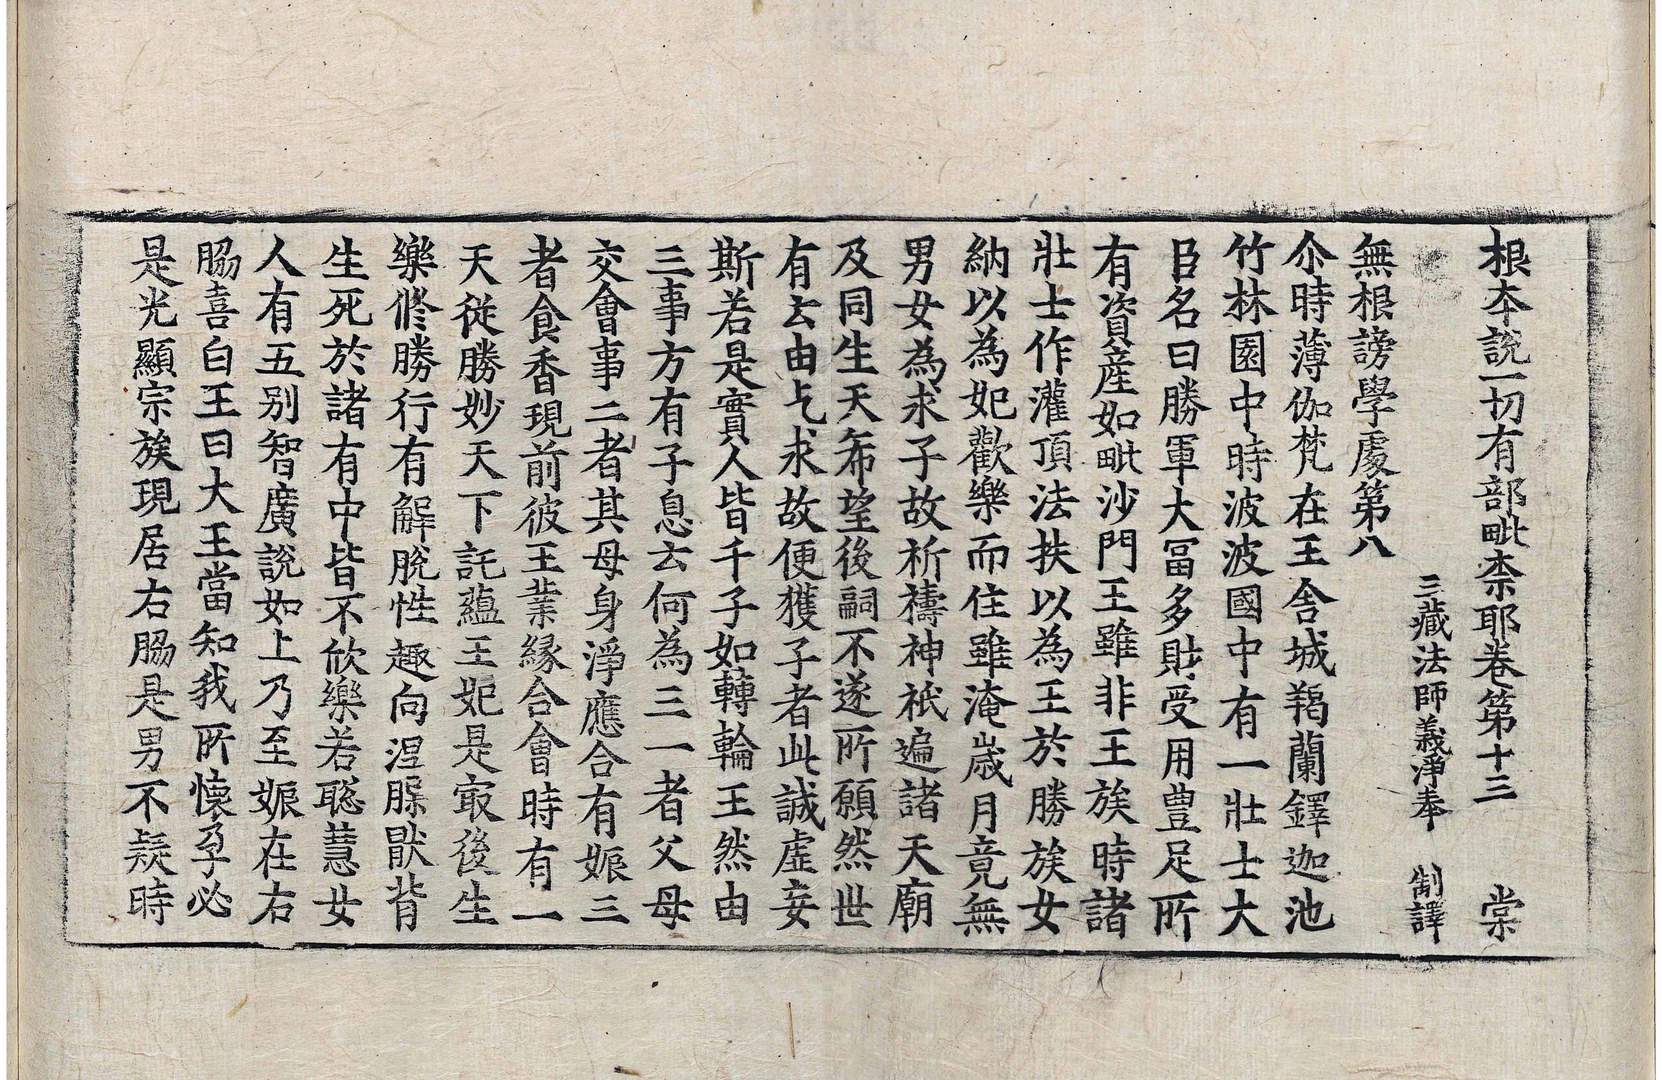 根本說一切有部毗柰耶卷第十三 棠
三藏法師義淨奉 制譯
無根謗學處第八
尒時薄伽梵在王舍城羯蘭鐸迦池
竹林園中時波波國中有一壯士大
臣名曰勝軍大冨多財受用豊足所
有資産如毗沙門王雖非王族時諸
壯士作灌頂法扶以為王於勝族女
納以為妃歡樂而住雖淹歲月竟無
男女為求子故祈禱神祇遍諸天廟
及同生天希望後嗣不遂所願然世
有云由乞求故便獲子者此誠虛妄
斯若是實人皆千子如轉輪王然由
三事方有子息云何為三一者父母
交會事二者其母身淨應合有娠三
者食香現前彼王業緣合會時有一
天從勝妙天下託蘊王妃是㝡後生
樂修勝行有解脫性趣向涅槃猒背
生死於諸有中皆不欣樂若聡慧女
人有五別智廣說如上乃至娠在右
脇喜白王曰大王當知我所懷孕必
是光顯宗族現居右脇是男不疑時